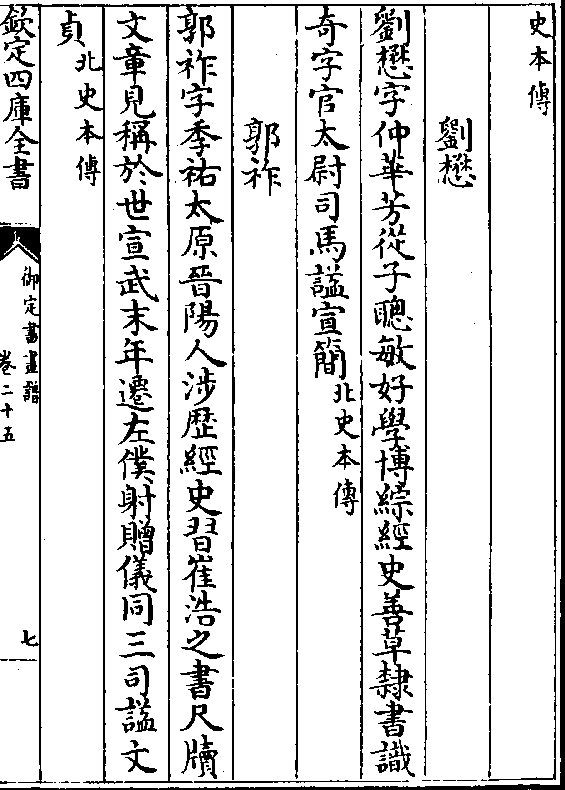 史本傳
劉懋
劉懋字仲華芳從子聰敏好學博綜經史善草隸書識
奇字官太尉司馬謚宣簡北史本傳
郭祚
郭祚字季祐太原晉陽人涉歴經史習崔浩之書尺牘
文章見稱於世宣武末年遷左僕射贈儀同三司謚文
貞北史本傳
欽定四庫全書
御定書畫譜
卷二十五
七